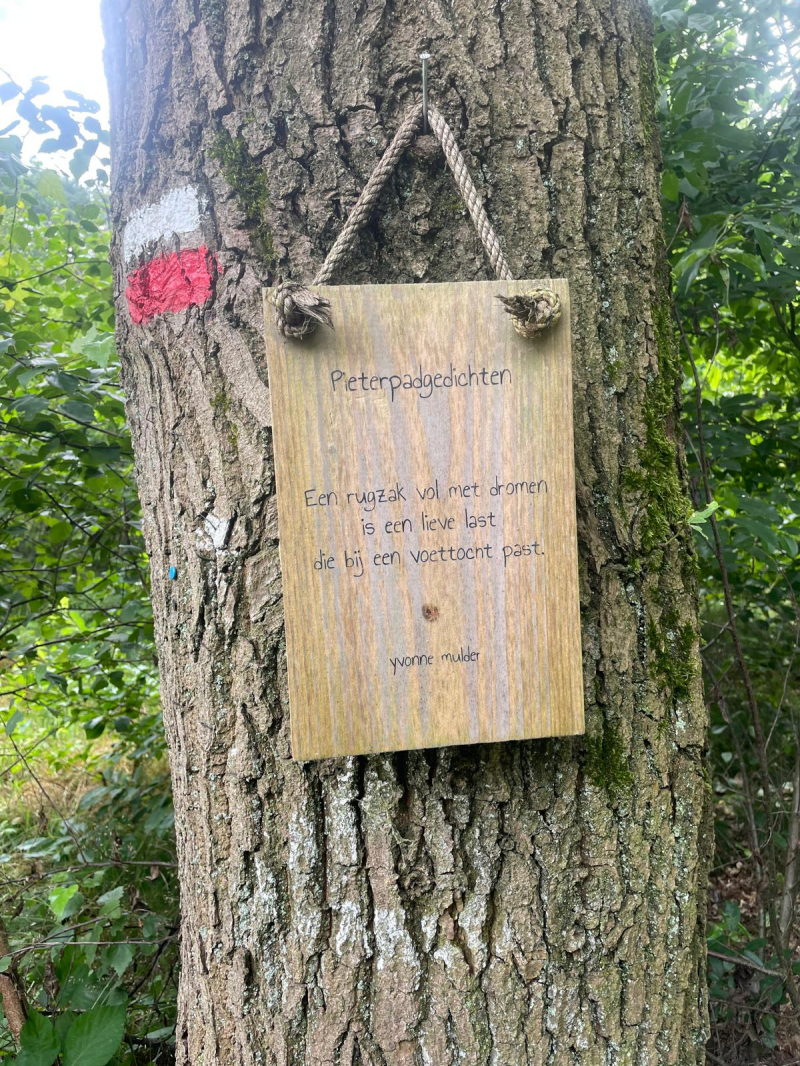 Pieterpadgedichten
Een rugzak vol met dromen
is een lieve last
die bij een voettocht past.
yvonne mulder